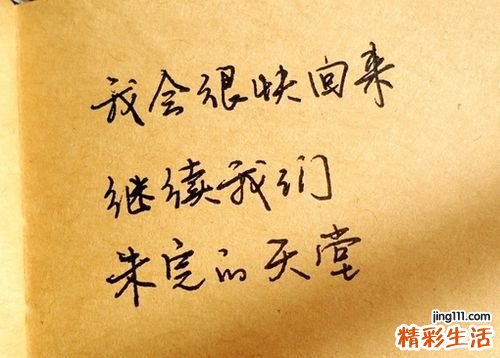 我会很快回来
继续我们
未完的天堂
jing111.com
精彩生活